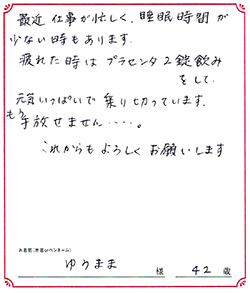 最近 仕事が忙しく、睡眠時間が
少ない時もあります.
疲れた時は プラセンタ2錠飲み
をして.
元気いっぱいで 乗り切っています.
もう手放せません・・・・。
これからも よろしく お願いします
お名前(本名orペンネーム)
ゆうまま 様 42 歳